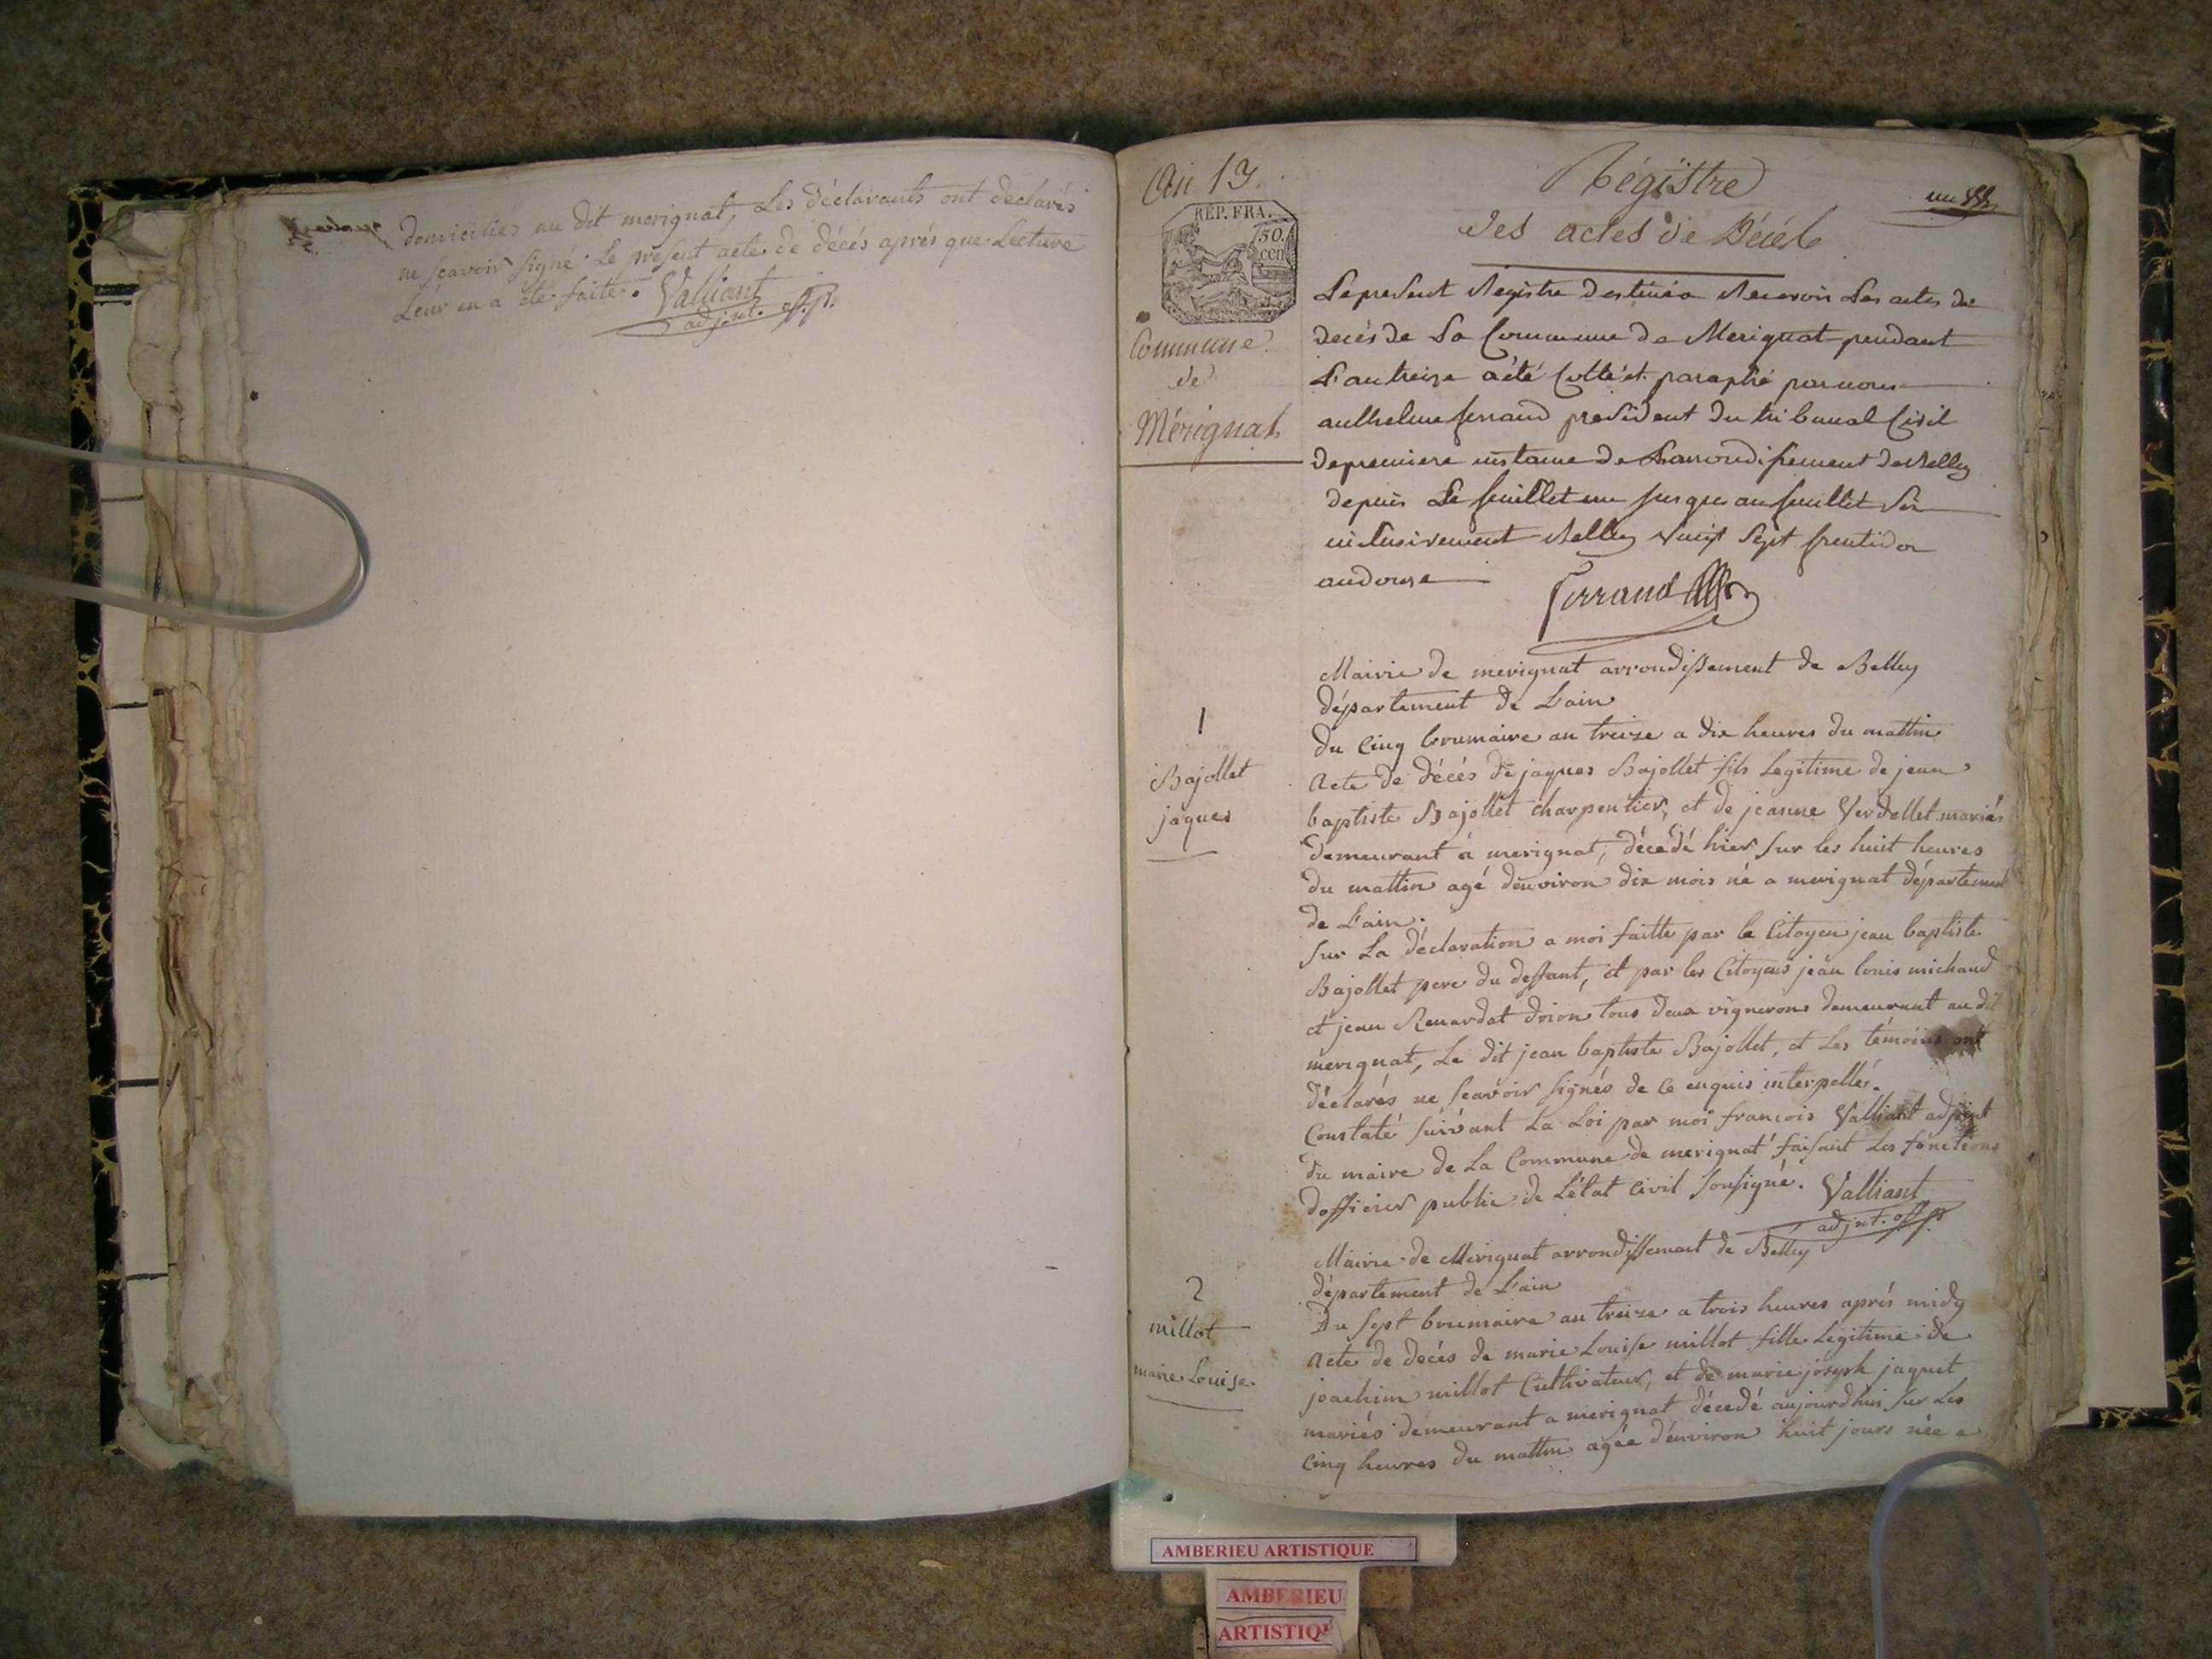 domiciliés au dit merignat, Les déclarants ont declarés
ne scavoir signé Le present acte de décés aprés que Lecture
Leur en a eté faite. Valliant
adjnt. off. p.
An 13.
REP. FRA.
50.
cen
Commune
de
Mérignat
Régistre
des actes de Décés
un
Le present Registre destiné a Recevoir Les actes de
decés de La Commune de Merignat pendant
L'an treize a été Cotté et paraphé par nous
anthelme ferrand president du tribunal Civil
de premiere instance de L'arrondissement de Belley
depuis Le feuillet un jusques au feuillet Six
inclusivement Belley vingt Sept fructidor
an douze
ferrand
Mairie de merignat arrondissement de Belley
département de L'ain
1
Du Cinq brumaire an treize a dix heures du mattin
Bajollet
jaques
Acte de décés de jaques Bajollet fils Legitime de jean
baptiste Bajollet charpentier, et de jeanne Verdellet mariés
demeurant á merignat, décédé hier sur les huit heures
du mattin agé d'environ dix mois né a merignat département
de L'ain.
sur La déclaration a moi faitte par le Citoyen jean baptiste
Bajollet pere du deffant, et par les Citoyens jean louis michaud
et jean Renardat doron tous deux vignerons demeurant au dit
merignat, Le dit jean baptiste Bajollet, et Les témoins ont
déclarés ne scavoir signés de Ce enquis interpellés.
Constaté suivant La Loi par moi francois Valliant adjoint
du maire de La Commune de merignat faisant Les fonctions
dofficier public de L'état Civil sousigné. Valliant
adjnt. off. p
Mairie de Merignat arrondissement de Belley
département de L'ain
2
millot
marie Louise
Du sept brumaire an treize a trois heures aprés midy
Acte de decés de marie Louise millot fille Legitime de
joachim millot Cultivateur, et de marie joseph jaquet
mariés demeurant a merignat décedé aujourdhui sur Les
Cinq heures du mattin agée d'environ huit jours née a
AMBERIEU ARTISTIQUE
AMBERIEU
ARTISTIQU